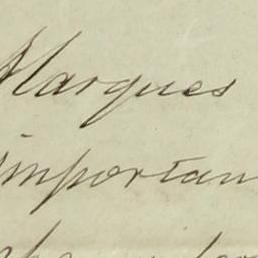 Marques
importan